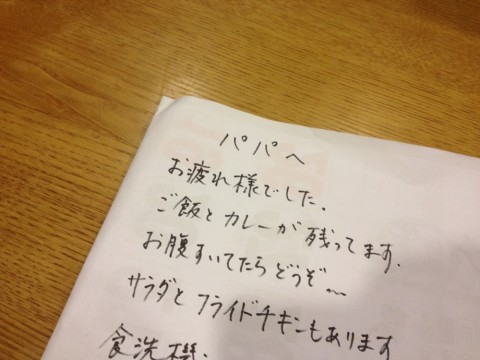 パパへ
お疲れ様でした。
ご飯とカレーが残ってます.
お腹すいてたらどうぞ〜
サラダとフライドチキンもあります
食洗機.